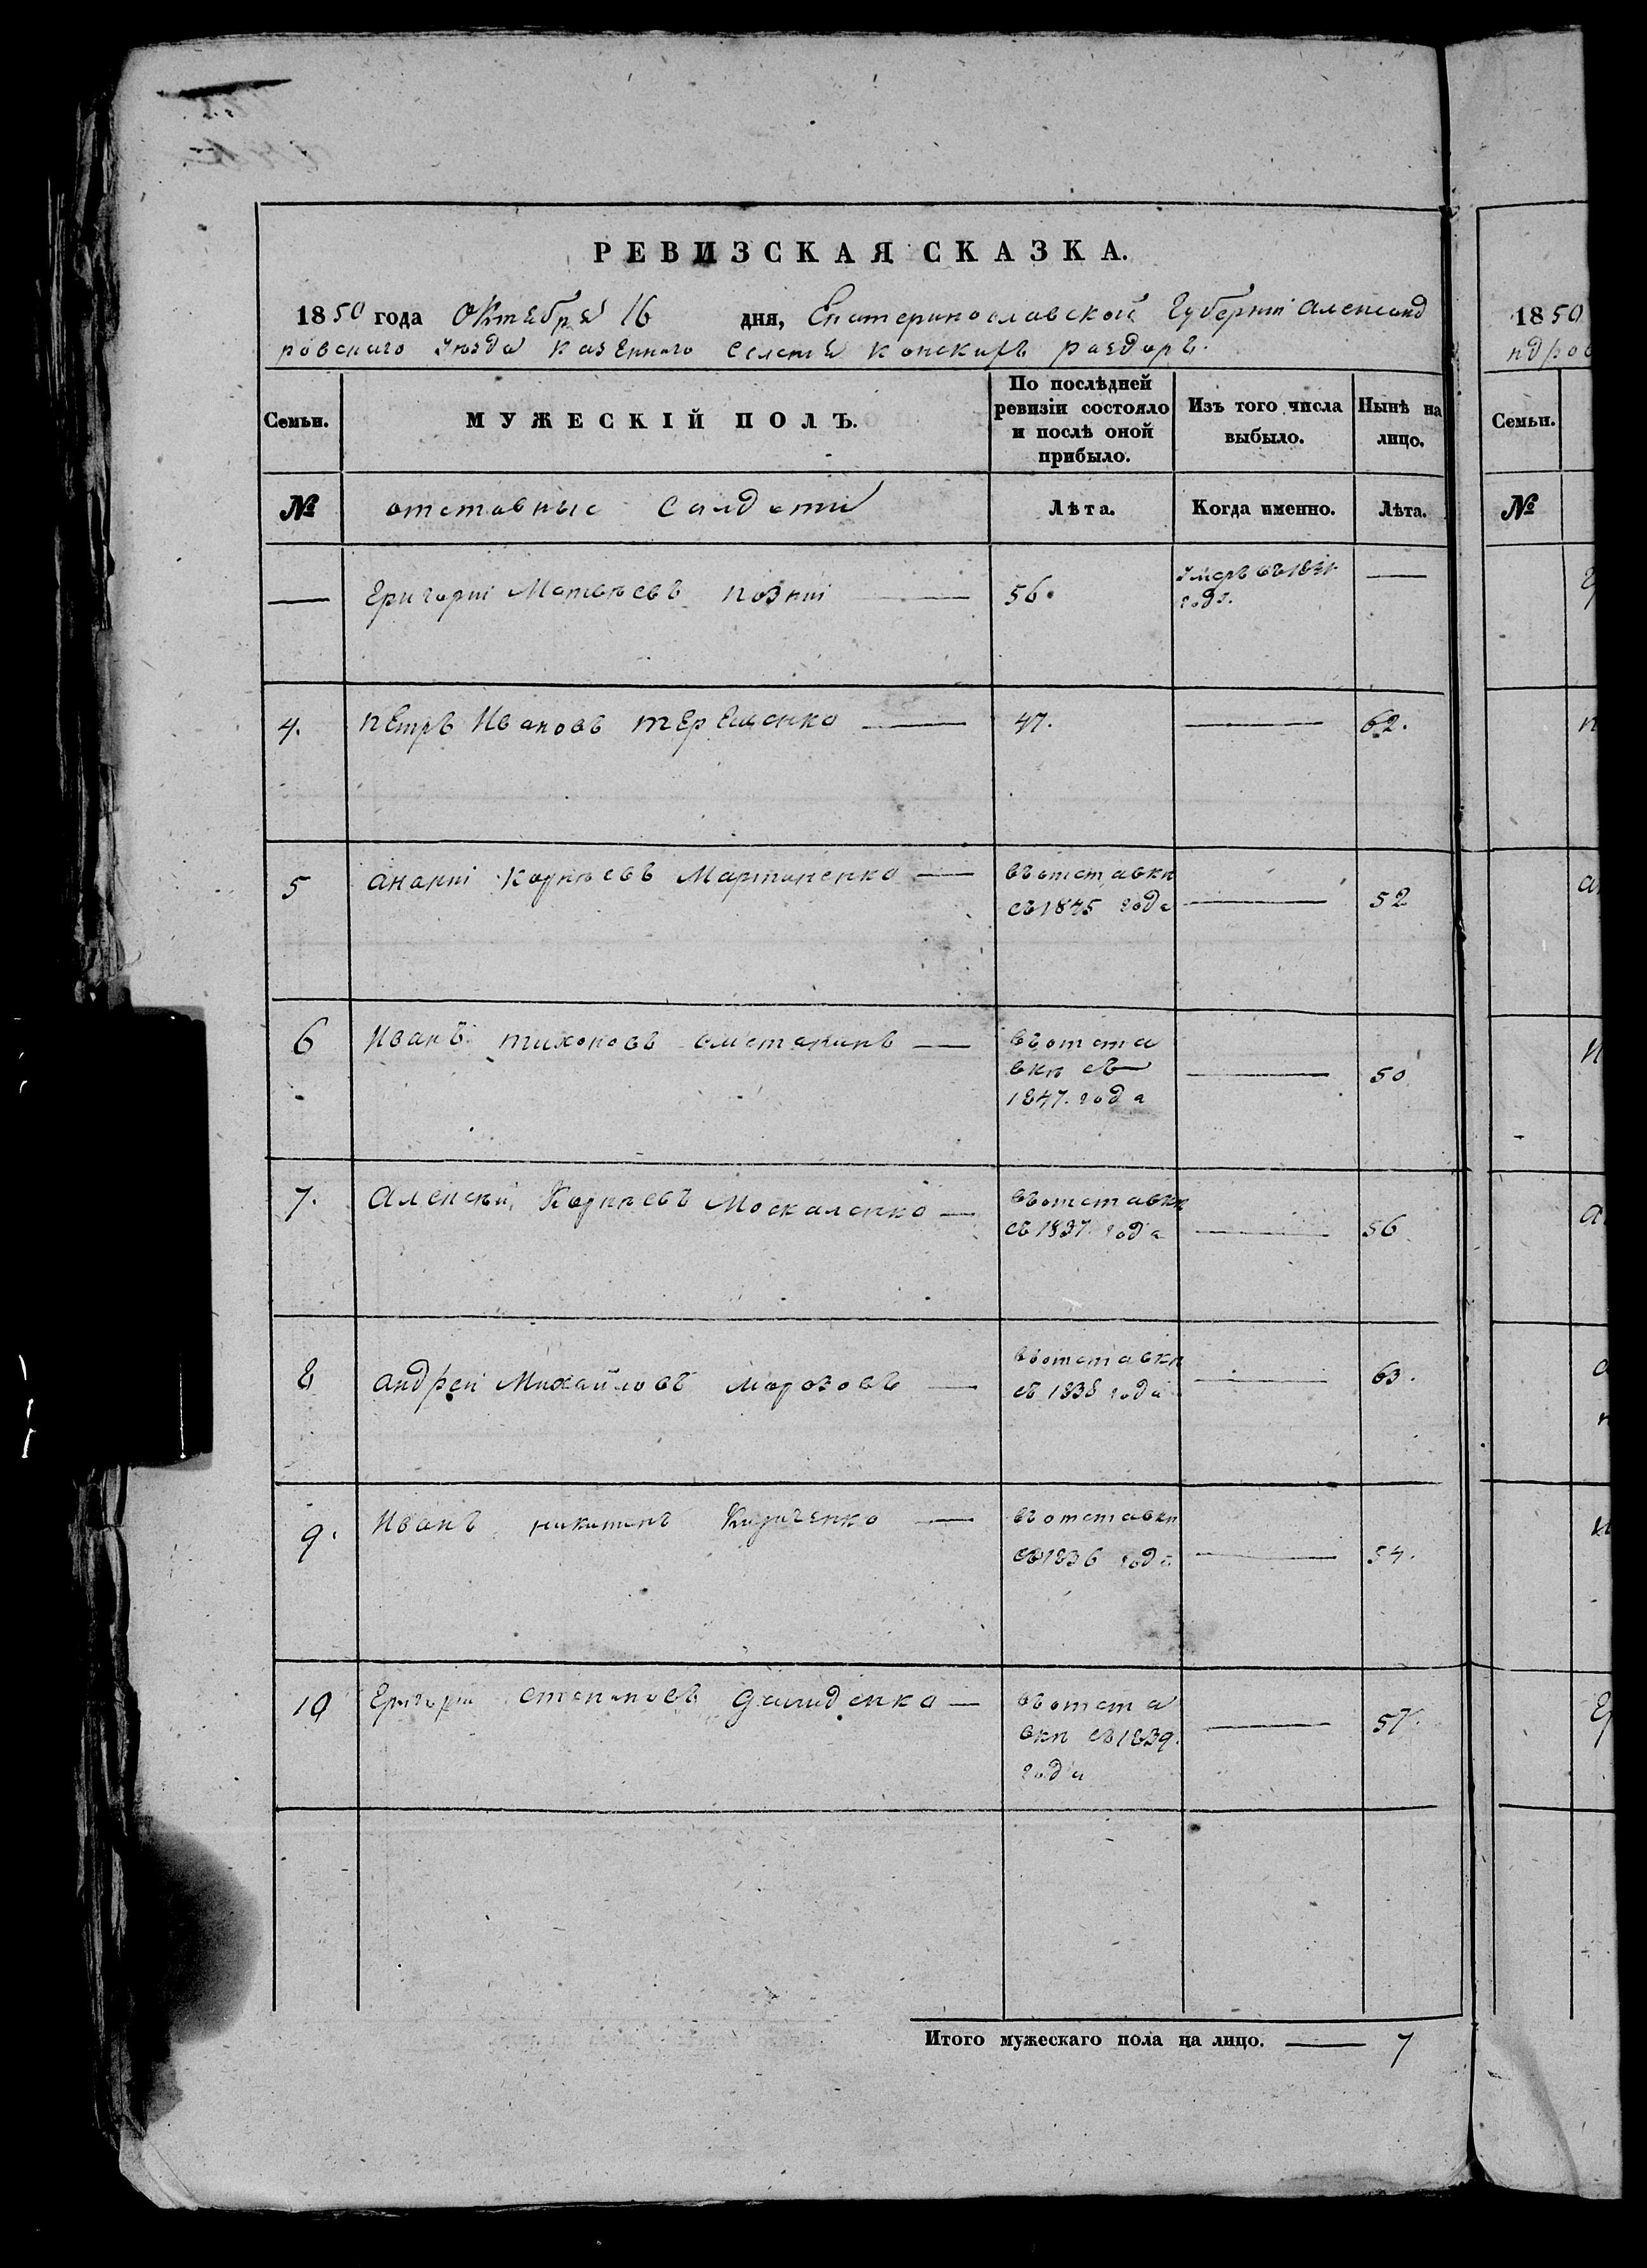 РЕВИЗСКАЯ СКАЗКА.
1850 года Октебря 16 дня, Екатеринославской Губернии Александ
ровскаго уезда казенного Селения Конскихъ раздоръ.
Семьи.
МУЖЕСКІЙ ПОЛЪ.
По послѣдней
ревизіи состояло
и послѣ оной
прибыло.
Изъ того числа
выбыло.
Нынѣ на
лицо.
№
отставные Салдаты
Лѣта.
Когда именно.
Лѣта.
— Григорий Матвѣевъ Позний — 56. умеръ въ 1841 —
годѣ.
4. Петръ Ивановъ Терещенко — 47. — 62.
5 Ананий Корнѣевъ Мартиненко — въ отставкѣ
съ 1845 года — 52
6 Иванъ Тихоновъ — въ отста
вкѣ съ
1847. года — 50
7. Алексѣй Корнѣевъ Москаленко — въ отставкѣ
съ 1837 года — 56
8 Андрей Михайловъ Морозовъ — въ отставкѣ
съ 1838 года — 63.
9. Иванъ Никитинъ Кириченко — въ отставкѣ
съ 1836 года — 54.
10 Григорий Степановъ — въ отста
вкѣ съ 1839.
года — 57.
Итого мужескаго пола на лицо. — 7
1850
ндров
Семьи.
№